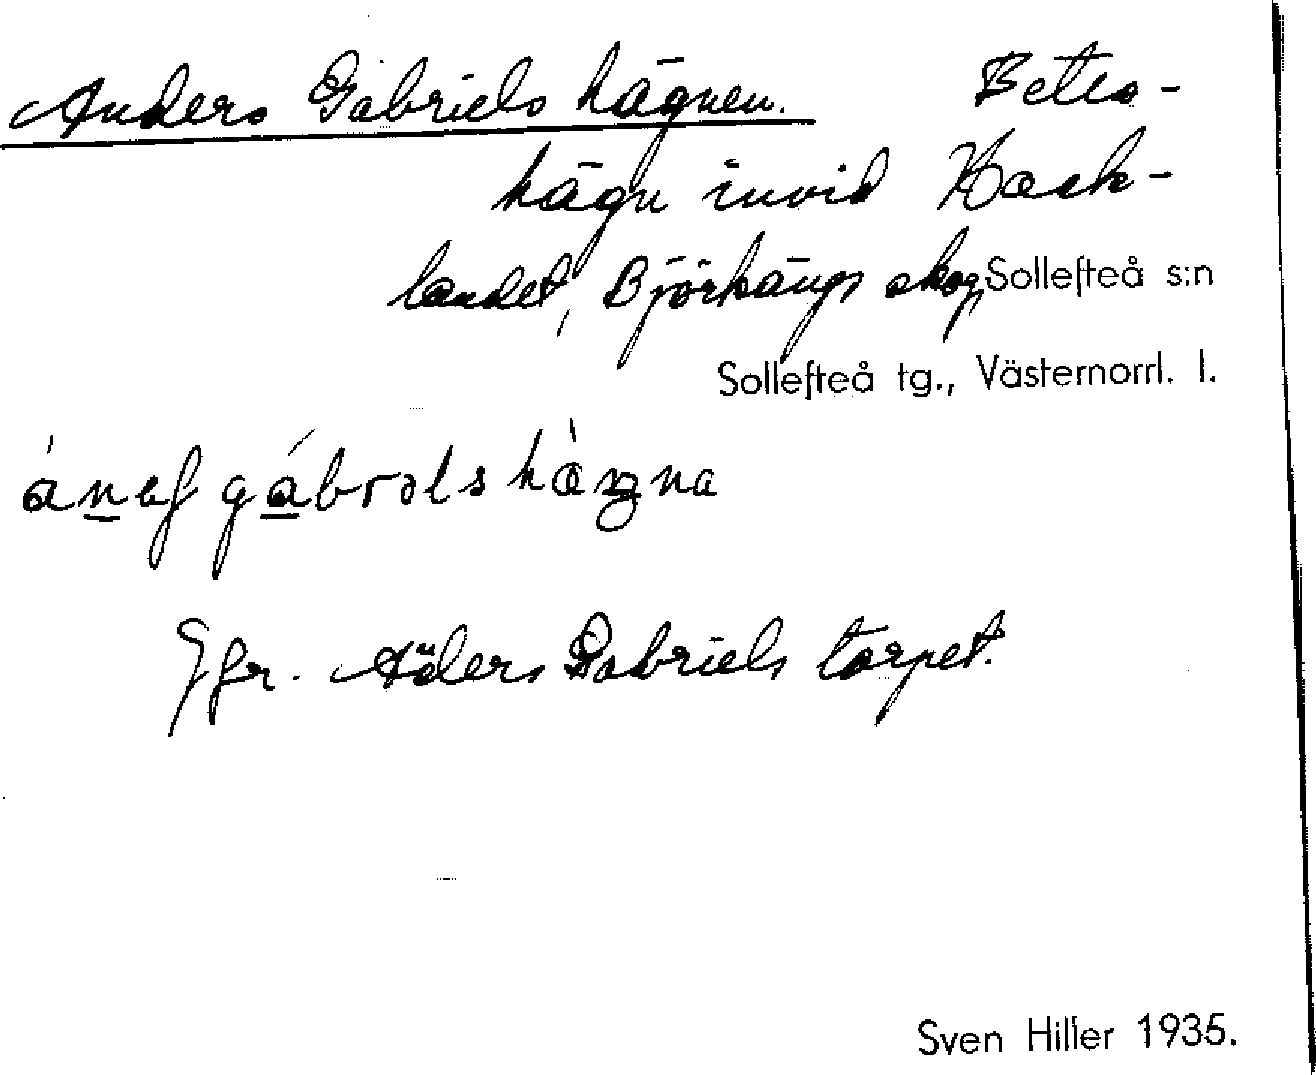 Anders Gabriels hägnen. Betes-
hägn invid Hack-
landet, Björkängs skog Sollefteå s:n
Sollefteå tg., Västernorrl. l.
Jfr. Anders Gabriels torpet.
Sven Hiller 1935.